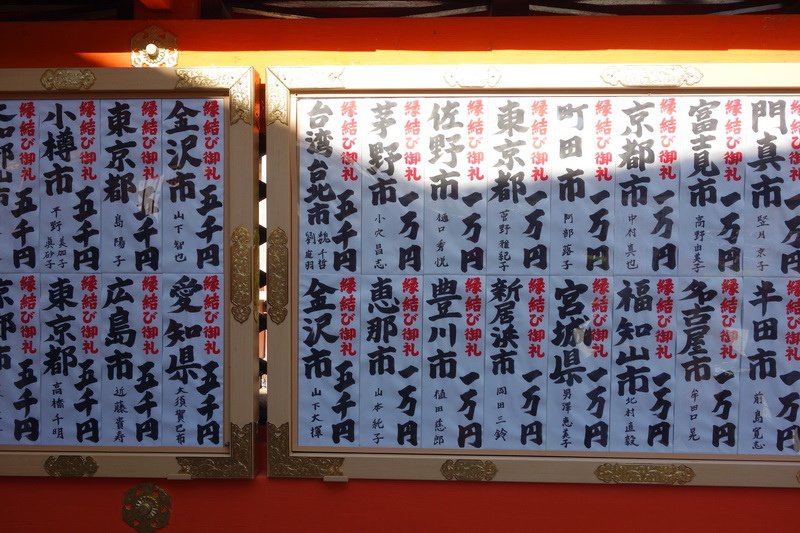 縁結び御礼 一万円
門真市 竪月 京子
縁結び御礼 一万円
富士見市 高野 由美子
縁結び御礼 一万円
京都市 中村 真也
縁結び御礼 一万円
町田市 阿部 蕗子
縁結び御礼 一万円
東京都 菅野 雅紀子
縁結び御礼 一万円
佐野市 樋口 秀悦
縁結び御礼 一万円
茅野市 小穴 昌志
縁結び御礼 五千円
台湾 台北市 魏 千哲
劉 庭羽
縁結び御礼 一万円
半田市 前島 寛志
縁結び御礼 一万円
名古屋市 牟田口 晃
縁結び御礼 一万円
福知山市 北村 直毅
縁結び御礼 一万円
宮城県 男澤 恵美子
縁結び御礼 一万円
新居浜市 岡田 三鈴
縁結び御礼 一万円
豊川市 植田 慈郎
縁結び御礼 一万円
恵那市 山本 純子
縁結び御礼 五千円
金沢市 山下 大輝
縁結び御礼 五千円
金沢市 山下 智也
縁結び御礼 五千円
東京都 島 陽子
縁結び御礼 五千円
小樽市 平野 美加子
眞砂子
縁結び御礼 五千円
縁結び御礼 五千円
愛知県 大須賀 已布
縁結び御礼 五千円
広島市 近藤 貴寿
縁結び御礼 五千円
東京都 高橋 千明
縁結び御礼 五千円